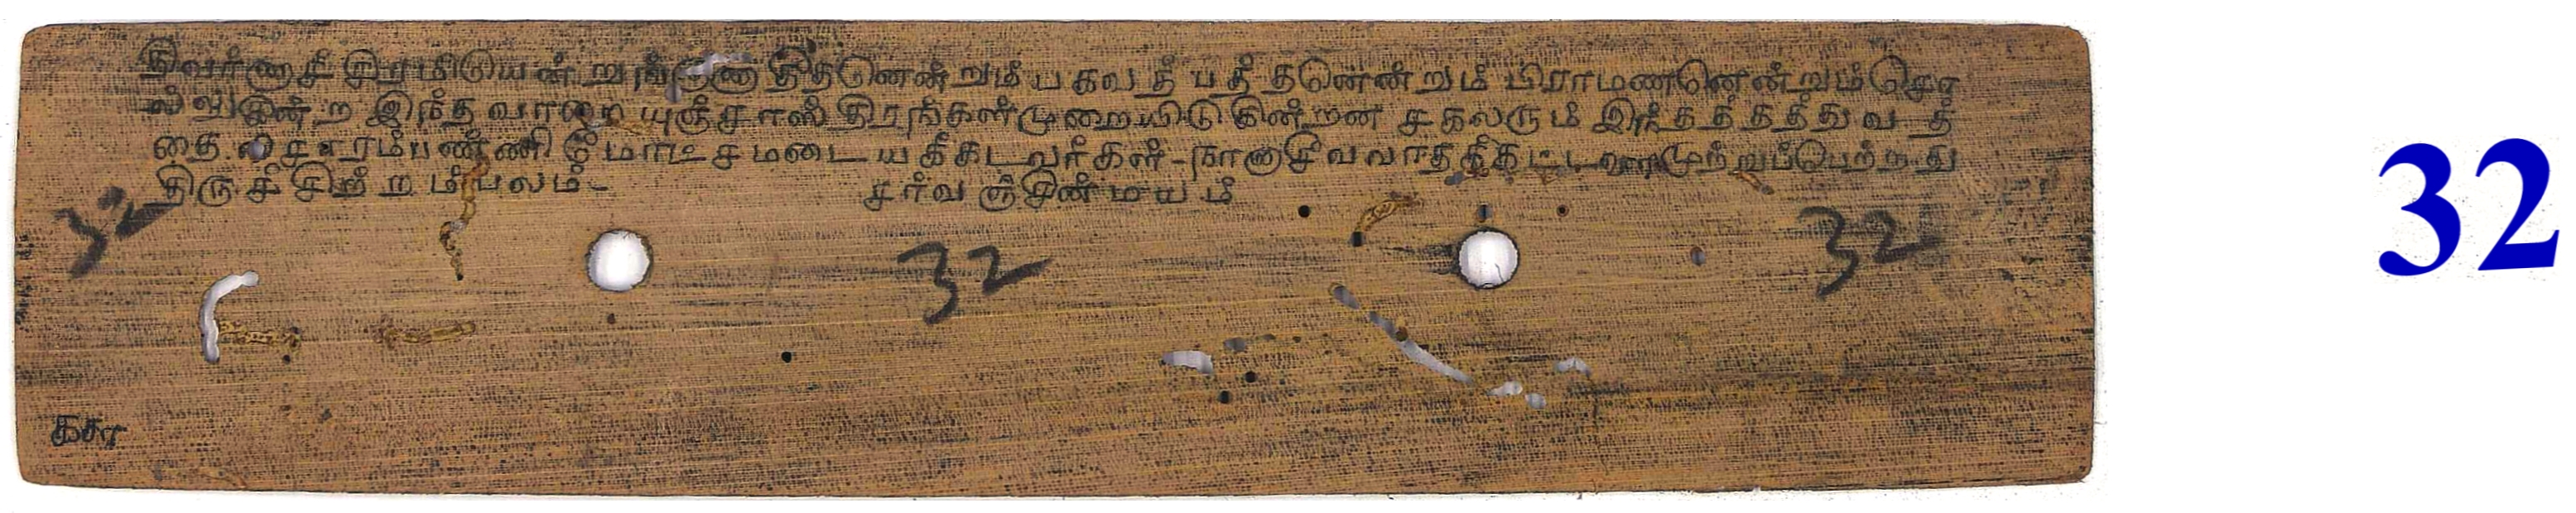 திவர்ணாச் சிரமிடுயன்றுங்குணாதீதனென்றும் பகவத் பத்தனென்றும் பிராமணனென்றும்சொ
ல்லுகின்ற இந்த வாறை யுஞ்சாஸ்திரங்கள்முறையிடுகின்றன சகலரும் இந்தத்தத்துவத்
தை விசாரம்பண்ணி மோட்சமடையக்கடவர்கள்-நானாசீவவாதக்கட்டளைமுற்றுப்பெற்றது
திருச்சிற்றம்பலம்- சர்வஞ்சின்மயம்
32 32 32
32
கசு